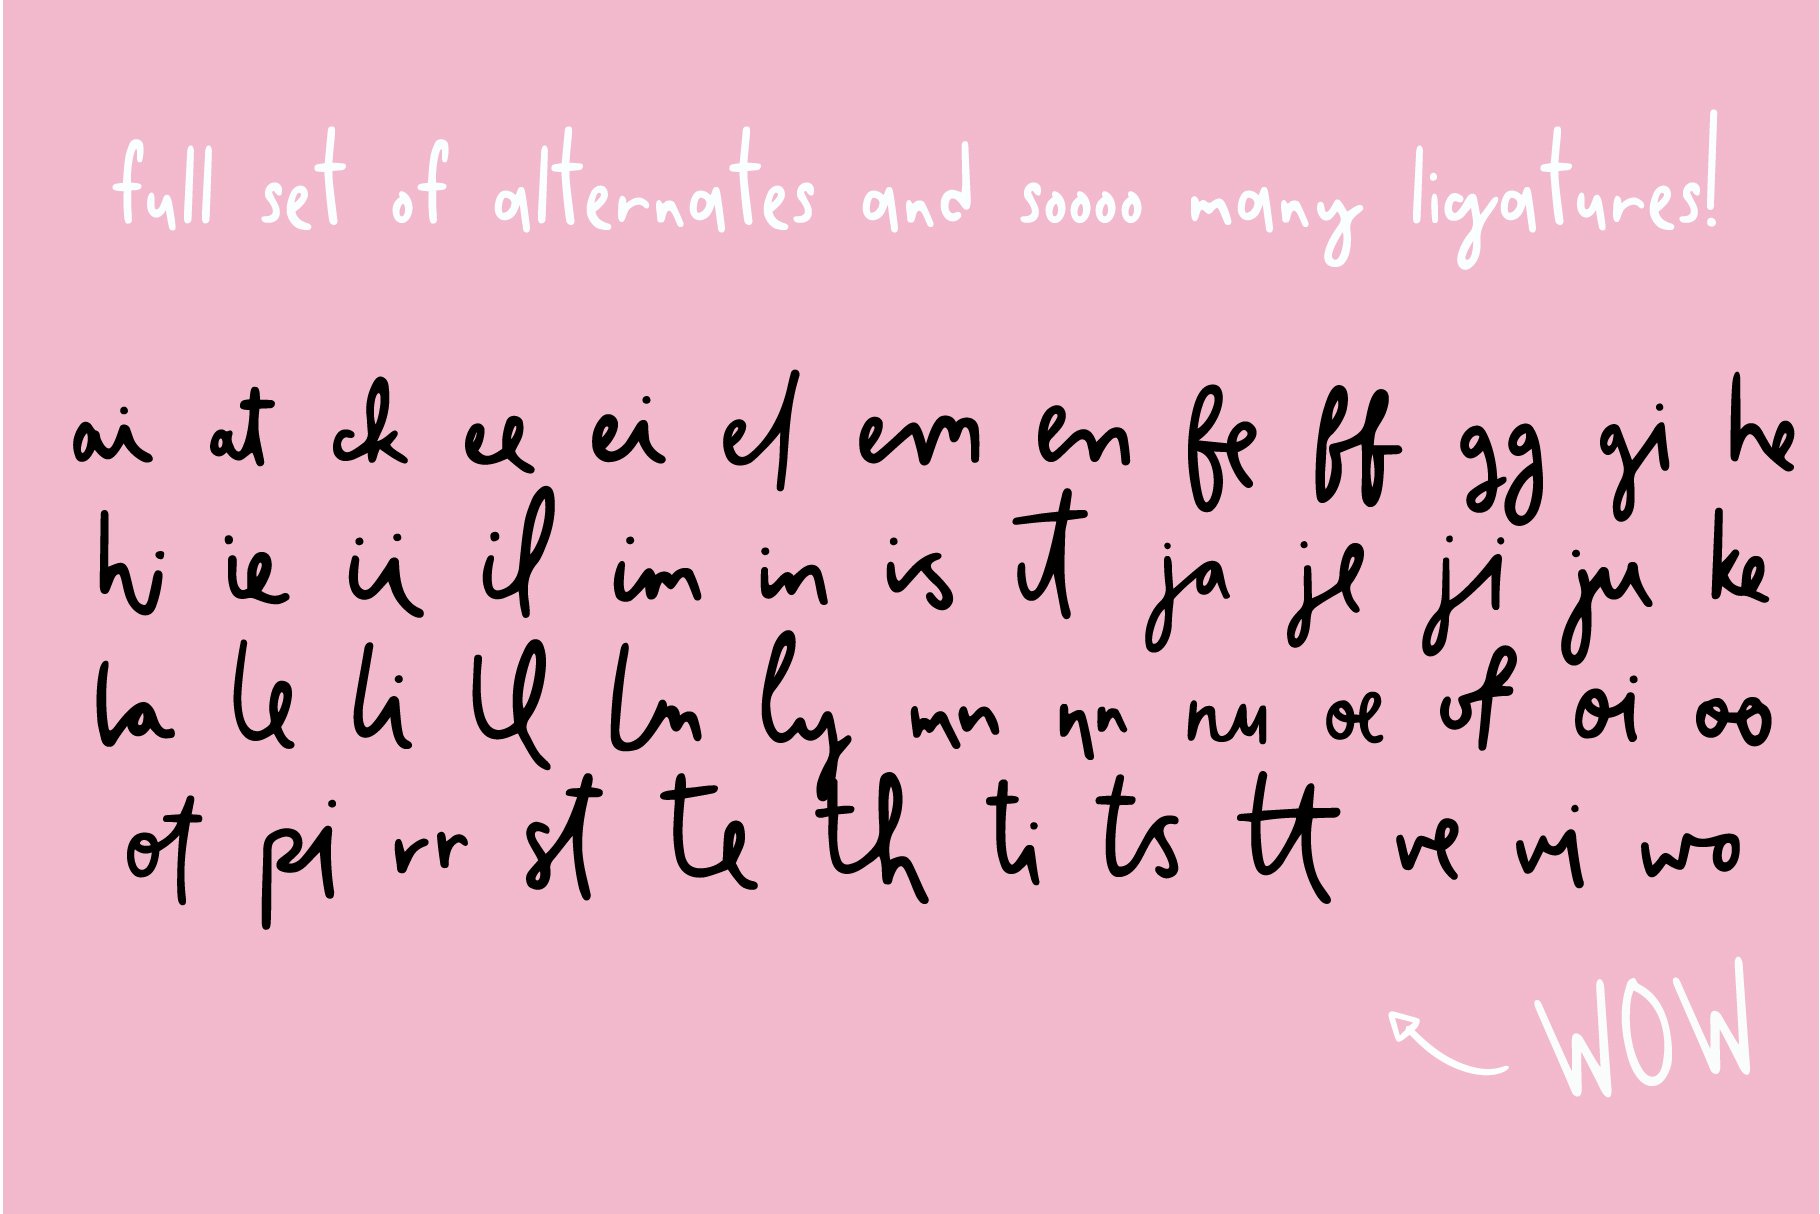 full set of alternates and soooo many ligatures!
ai at ck ee ei el em en fe ff gg gi he
hi ie ii il im in is it ja je ji ju ke
la le li ll lm ly mn nn nu oe of oi oo
ot pi rr st te th ti ts tt ve vi wo
WOW